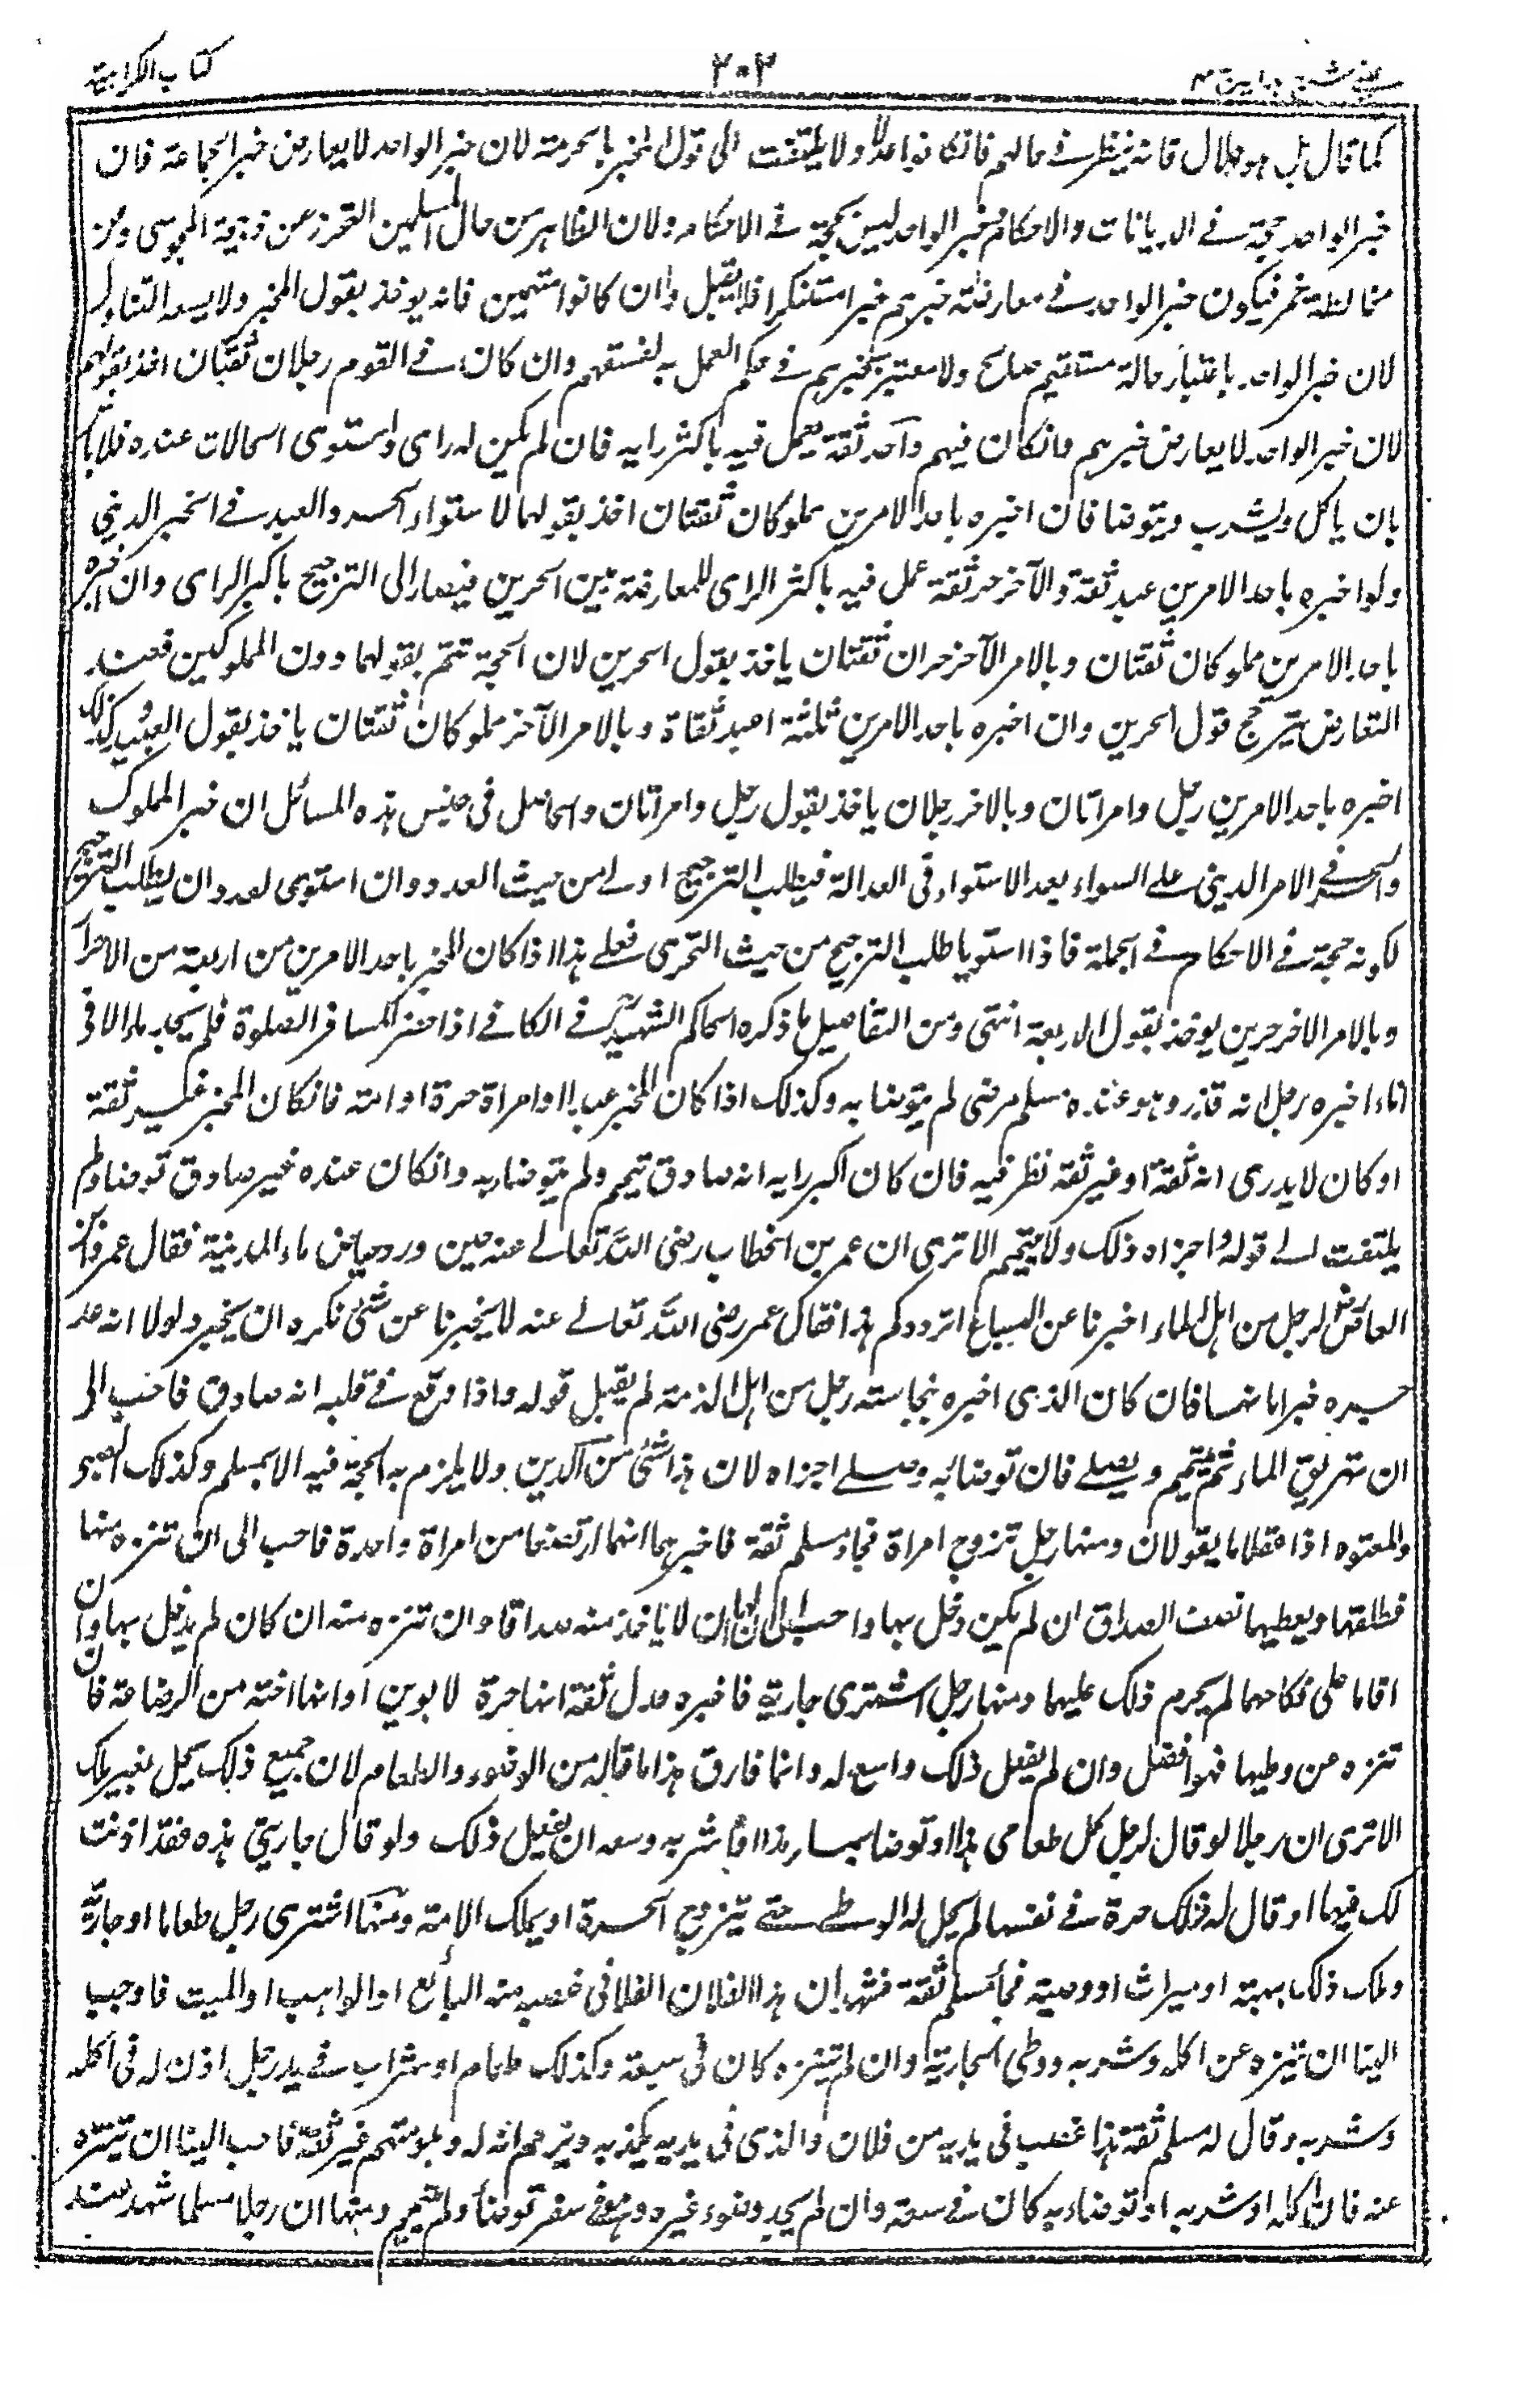 عینی شرح ہدایہ ج ۴
۲۰۳
كتاب الكراہیة
كما قال بل ہو حلال فانہ ینظر فی حالہم فانكانوا عدولا ولا یلتفت الی قول المخبر بالحرمة لان خبر الواحد لا یعارض خبر الجماعة فان
خبر الواحد حجة فی الدیانات والاحكام وخبر الواحد لیس بحجة فی الاحكام ولان الظاہر من حال المسلمین التحرز عن ذبیحة المجوسی وعن
مخالطة خمر فیكون خبر الواحد فی معارضتہ خبرہم خبرا مستنكرا فلا یقبل وان كانوا متہمین فانہ یوخذ بقول المخبر ولا یسعہ التناول
لان خبر الواحد باعتبار حالة مستقیم صالح ولا معتبر بخبرہم فی حكم العمل بہ لفسقہم وان كان فی القوم رجلان ثقتان اخذ بقولہم
لان خبر الواحد لا یعارض خبرہم وانكان فیہم واحد ثقة یعمل فیہ باكثر رایہ فان لم یكن لہ رای واستوی الحالات عندہ فلا باس
بان یاكل ویشرب ویتوضا فان اخبرہ باحد الامرین مملوكان ثقتان اخذ بقولہما لاستواء الحر والعبد فی الخبر الدینی
ولو اخبرہ باحد الامرین عبد ثقة والآخر حر ثقة عمل فیہ باكثر الرای للمعارضة بین الحرین فیصار الی الترجیح باكبر الرای وان اخبرہ
باحد الامرین مملوكان ثقتان وبالامر الآخر حران ثقتان یاخذ بقول الحرین لان الحجة تتم بقولہما دون المملوكین فعند
التعارض یترجح قول الحرین وان اخبرہ باحد الامرین ثلثة اعبد ثقاة وبالامر الآخر مملوكان ثقتان یاخذ بقول العبید وكذلك
اخبرہ باحد الامرین رجل وامراتان وبالآخر رجلان یاخذ بقول رجل وامراتان والحاصل فی جنس ہذہ المسائل ان خبر المملوك
والحر فی الامر الدینی علی السواء بعد الاستواء فی العدالة فیطلب الترجیح اولے من حیث العدد وان استوی لعددان یطلب الترجیح
لكونہ حجة فی الاحكام فی الجملة فاذا استویا طلب الترجیح من حیث التحری فعلے ہذا اذا كان المخبر باحد الامرین من اربعة من الاحرار
وبالامر الاخر حرین یوخذ بقول الاربعة انتہی ومن التفاصیل ما ذكرہ الحاكم الشہید فی الكافے اذا حضر المسافر الصلوة فلم یجد ماء الا فی
اناء اخبرہ رجل انہ قذر وہو عندہ مسلم مرضی لم یتوضا بہ وكذلك اذا كان المخبر عبدا او امراة حرة او امتہ فانكان المخبر غیر ثقة
او كان لا یدری انہ ثقة او غیر ثقة نظر فیہ فان كان اكبر رایہ انہ صادق تیمم ولم یتوضا بہ وانكان عندہ غیر صادق توضا ولم
یلتفت الے قولہ واجزاہ ذلك ولا یتیمم الا تری ان عمر بن الخطاب رضی اللہ تعالے عنہ حین ورد حیاض ماء المدینة فقال عمرو بن
العاص لرجل من اہل الماء اخبرنا عن السباع اترد وكم ہذا فقال عمر رضی اللہ تعالے عنہ لا یخبرنا عن شئ نكرہ ان یخبر ولولا انہ عد
خبرہ خبرا ما نہا فان كان الذی اخبرہ بنجاستہ رجل من اہل الذمة لم یقبل قولہ واذا وقع فی قلبہ انہ صادق فاحب الی
ان تہریق الماء ثم یتیمم ویصلے فان توضا بہ وصلے اجزاہ لان ہذا شئ من الدین ولا یلزم بہ الحجة فیہ الا بمسلم وكذلك الصبی
والمعتوہ اذا عقلا ما یقولان ومنہا رجل تزوج امراة فجاء مسلم ثقة فاخبرہما انہما ارتضعا من امراة واحدة فاحب الی ان تنزہ منہا
فطلقہا ویعطیہا نصف الصداق ان لم یكن دخل بہا واحب الی لہا ان لا یاخذ منہ صداقا وان تنزہ منہ ان كان لم یدخل بہا وان
اقاما علی نكاحہما لم یحرم ذلك علیہما ومنہا رجل اشتری جاریة فاخبرہ عدل ثقة انہا حرة لابوین او انہا اختہ من الرضاعة فان
تنزہ من وطیہا فہو افضل وان لم یفعل ذلك واسع لہ وانما فارق ہذا ما قالہ من الوضوء والطعام لان جمیع ذلك یحل بغیر ملك
الا تری ان رجلا لو قال لرجل كل طعامی ہذا او توضا بمماء ہذا او اشربہ وسعہ ان یفعل ذلك ولو قال جاریتی ہذہ فقد اذنت
لك فیہا او قال لہ فذلك حرة فی نفسہا لم یحل لہ الوطے حتے یتزوج الحرة او یملك الامة ومنہا اشتری رجل طعاما او جاریة
وملك ذلك بہبتہ او میراث او وصیة فجاء مسلم ثقة فشہد ان ہذا لفلان الفلانی غصبہ منہ البائع او الواہب او المیت فاوجب
الینا ان یتنزہ عن اكلہ وشربہ ووطی الجاریة وان لم یتنزہ كان فی سعة وكذلك طعام او شراب فی ید رجل اذن لہ فی اكلہ
وشربہ وقال لہ مسلم ثقة ہذا غصب فی یدیہ من فلان والذی فی یدیہ یكذبہ ویزعم انہ لہ وہو متہم غیر ثقة فاحب الینا ان یتنزہ
عنہ فان اكلہ او شربہ او توضاء بہ كان فی سعة وان لم یجد وضوء غیرہ وہو فی سفر توضأ ولم یتیمم ومنہا ان رجلا مسلما شہد عند